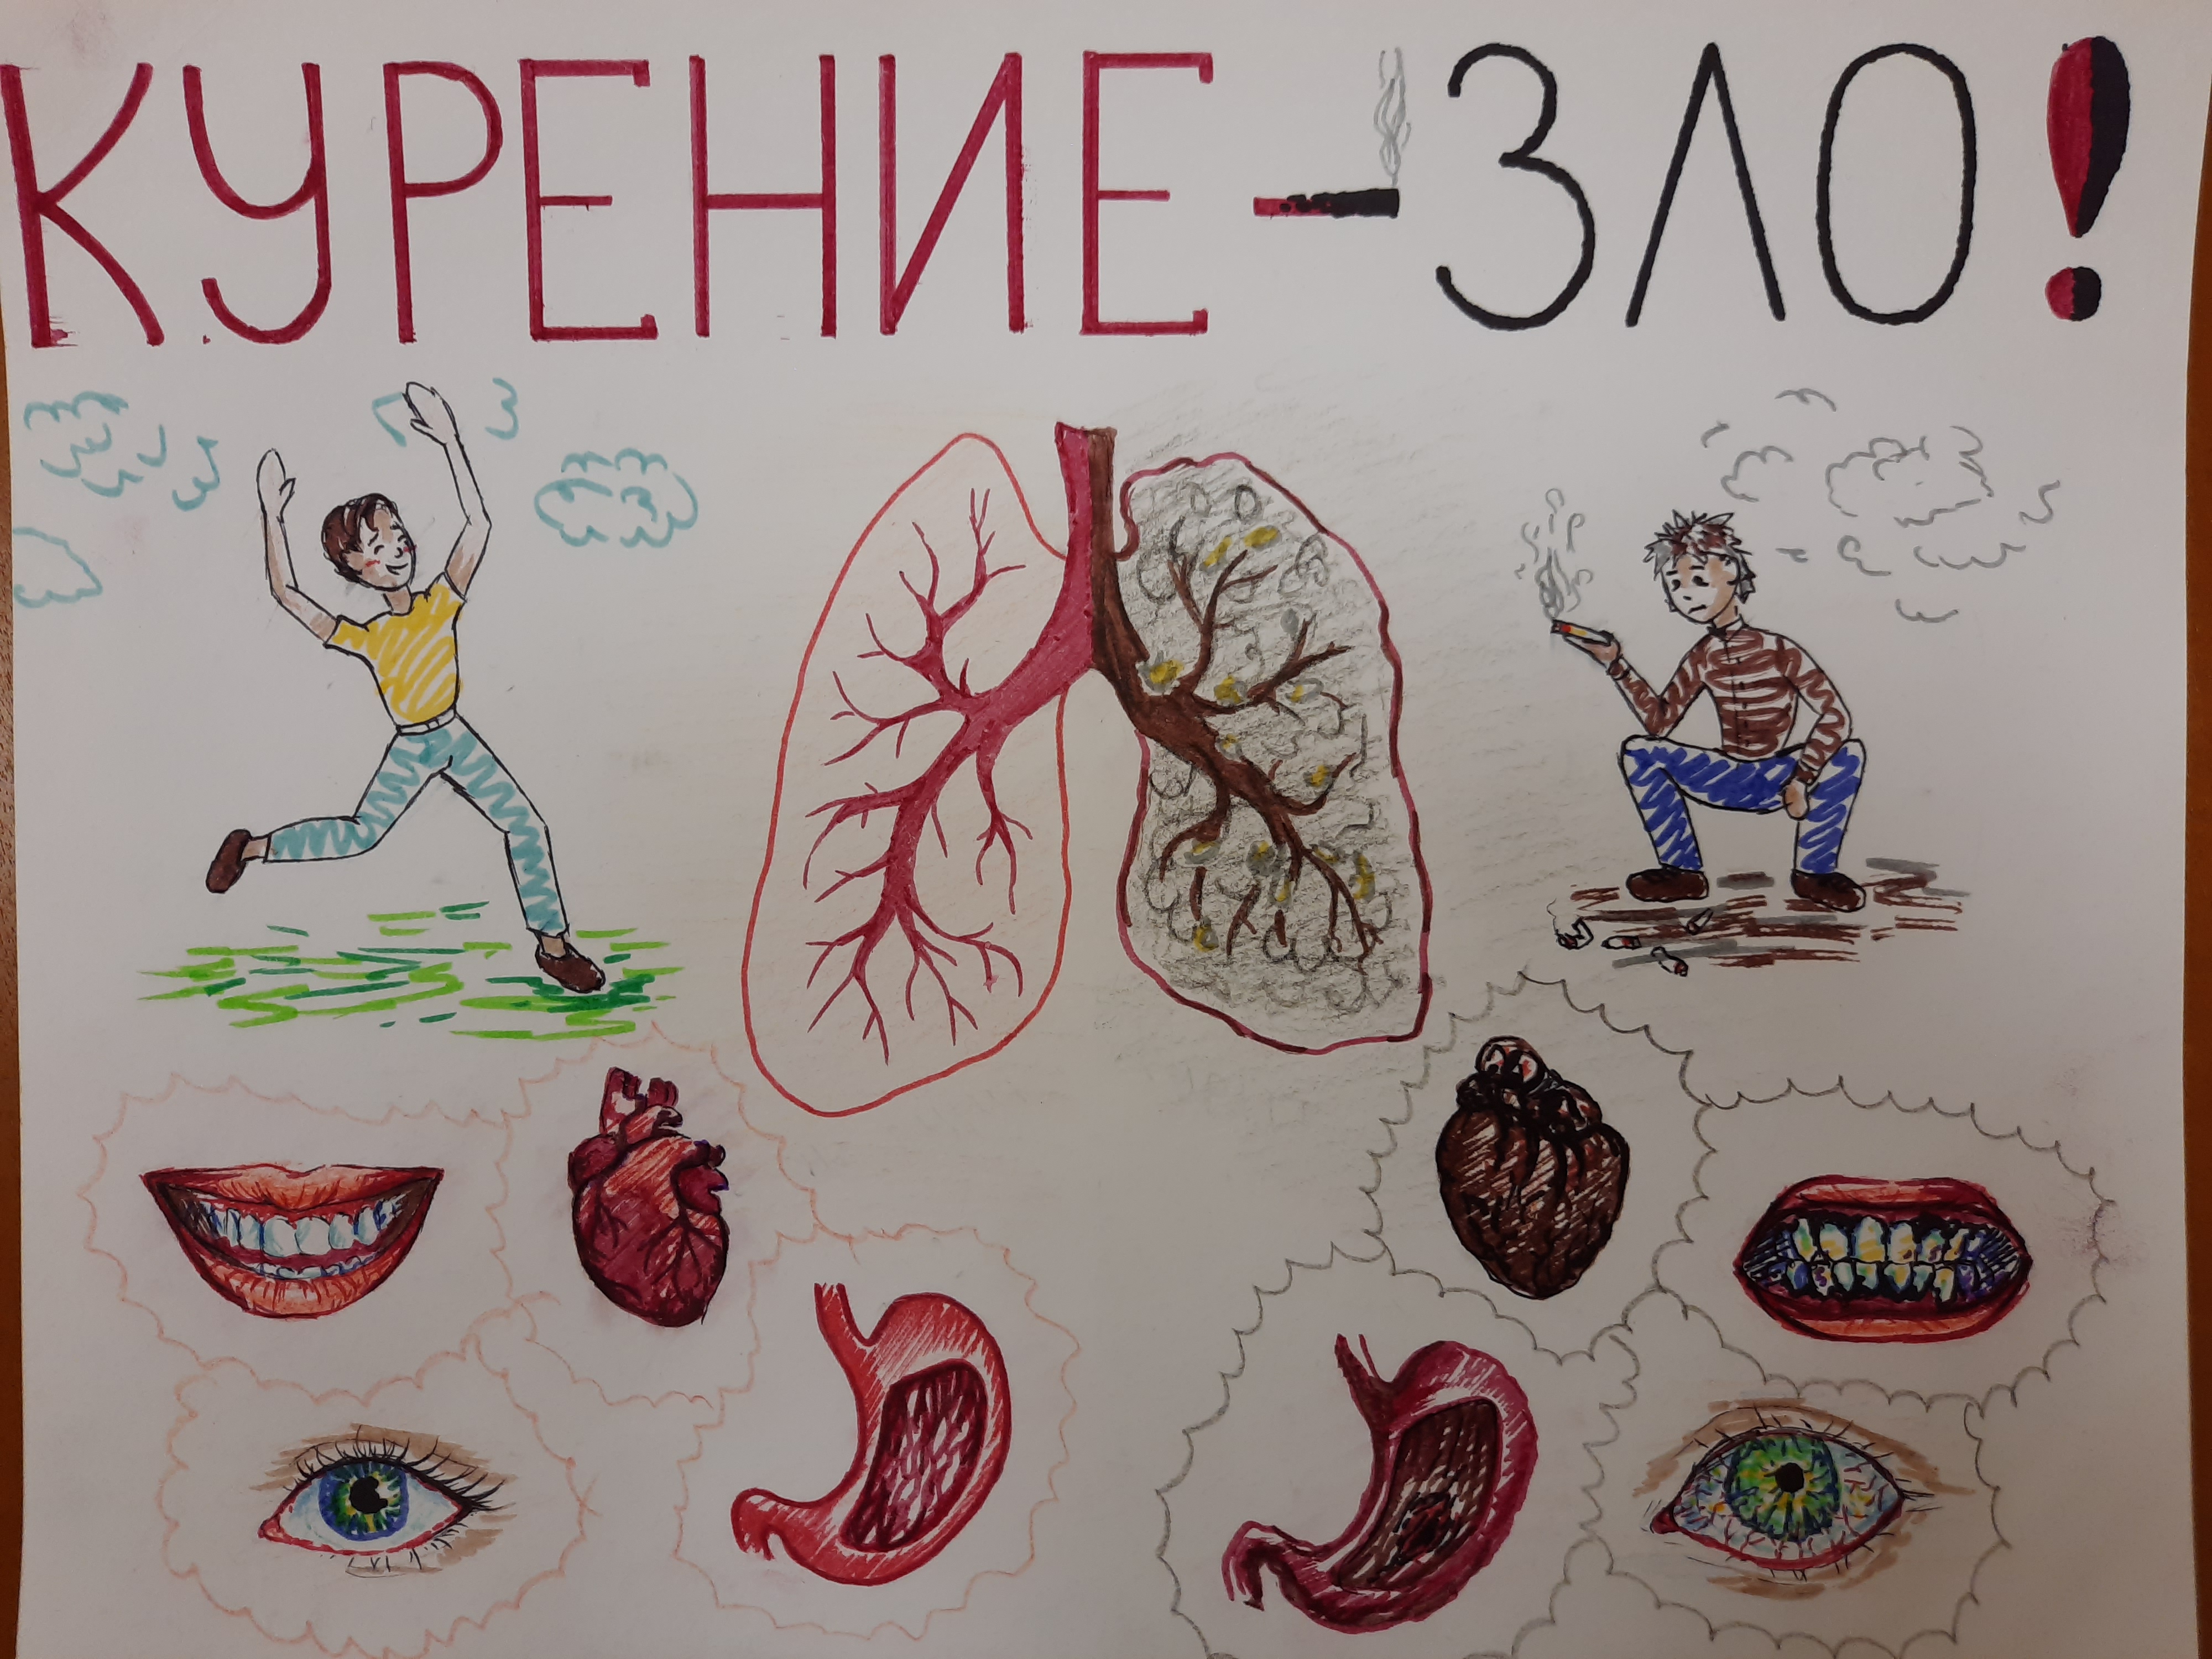 КУРЕНИЕ - ЗЛО!